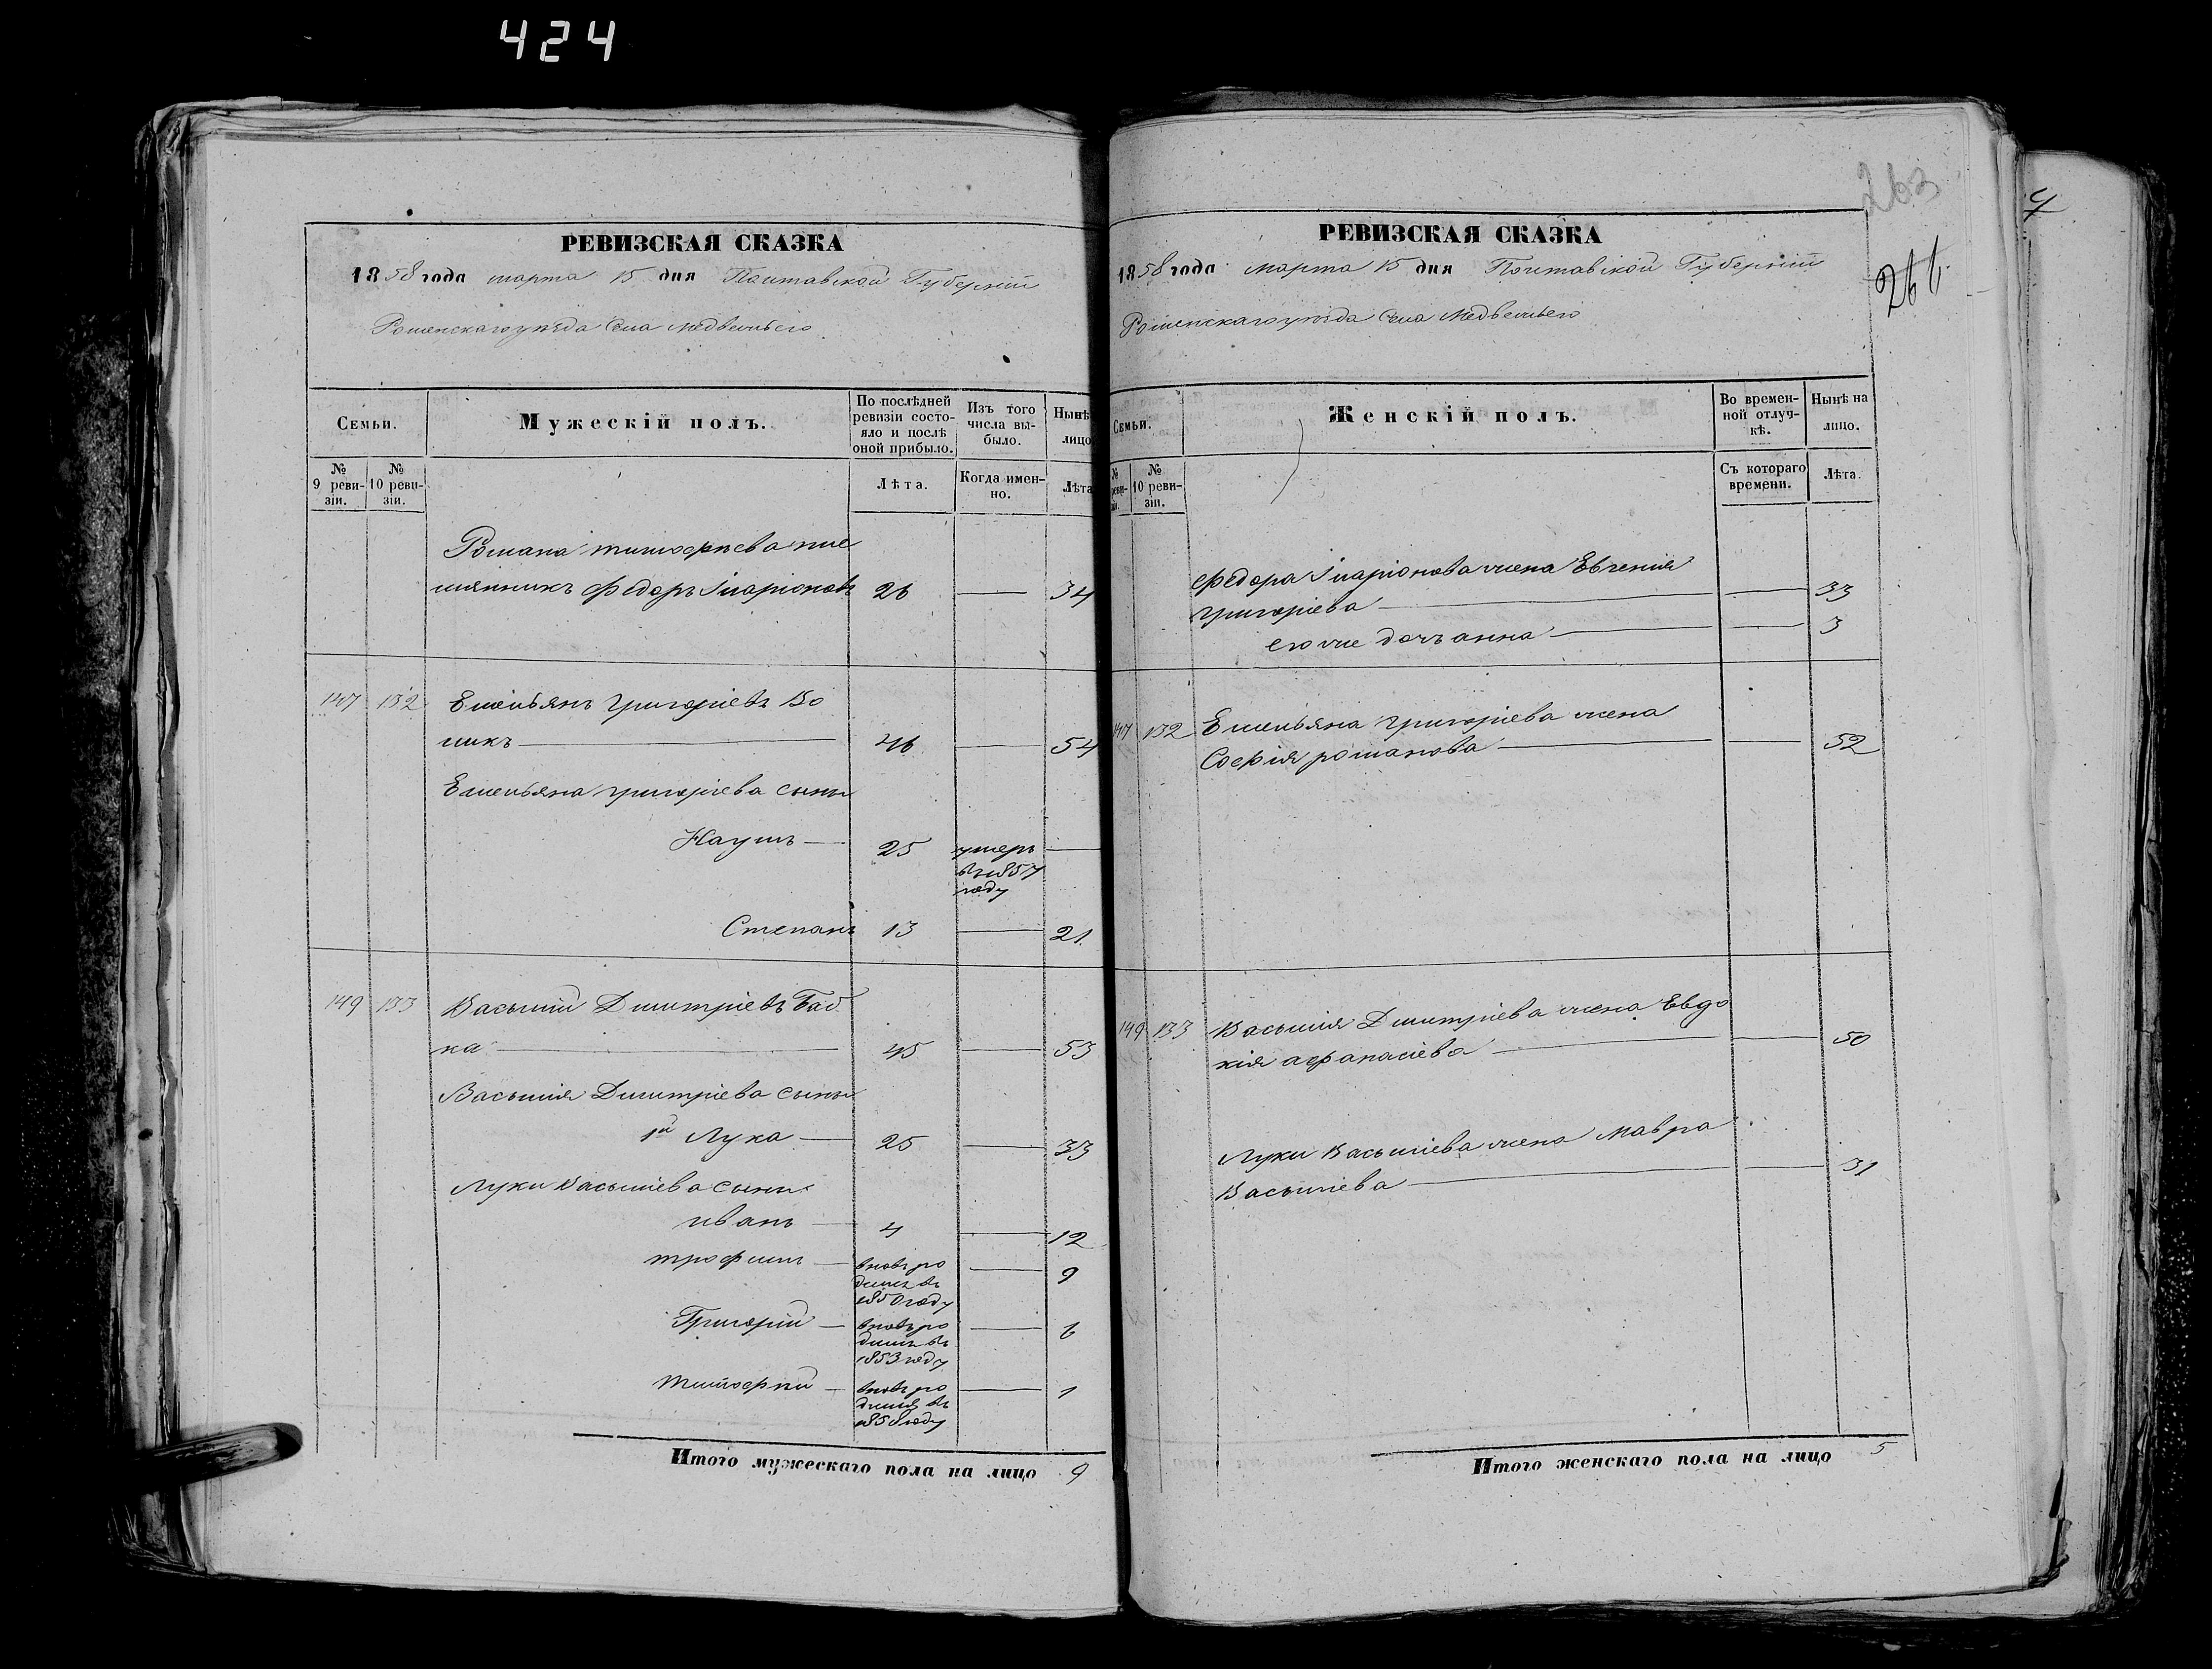 424
РЕВИЗСКАЯ СКАЗКА
1858 года марта 15 дня Полтавской Губерніи
Роменскаго уѣзда Села Медвежьего
Семьи.
Мужескій полъ.
По послѣдней ревизіи состояло и послѣ оной прибыло.
Изъ того числа выбыло.
Нынѣ лицо
№ 9 ревизіи.
№ 10 ревизіи.
Лѣта.
Когда именно.
Лѣта
Романа тимофѣева пле
мянникъ Федоръ Іларіоновъ 26 — 34
147 132 Емельянъ григоріевъ Во
ликъ — 46 — 54
Емельяна григоріева сыны
Наумъ — 25 умеръ —
въ 1857
году
Степанъ 13 — 21
149 133 Василій Дмитріевъ Баб
ка — 45 — 53
Василія Дмитріева сыны
1й Лука — 25 — 33
Луки Васильева сыны
иванъ — 4 — 12
трофимъ — вновь ро — 9
дился въ
1850 году
Григорій — вновь ро — 6
дился въ
1853 году
тимофѣй — вновь ро — 1
дился въ
1858 году
Итого мужескаго пола на лицо 9
263
РЕВИЗСКАЯ СКАЗКА
1858 года марта 15 дня Полтавской Губерніи
Роменскаго уѣзда Села Медвежьего
Семьи.
Женскій полъ.
Во временной отлучкѣ.
Нынѣ на лицо.
№ 10 ревизіи.
Съ котораго времени.
Лѣта.
Федора Іларіонова жена Евгенія
григоріева — — 33
его же дочь анна — — 3
147 132 Емельяна григоріева жена
Софія романова — — 52
149 133 Василія Дмитріева жена Евдо
кія афанасіева — — 50
Луки Васильева жена Мавра
Васильева — — 31
Итого женскаго пола на лицо 5